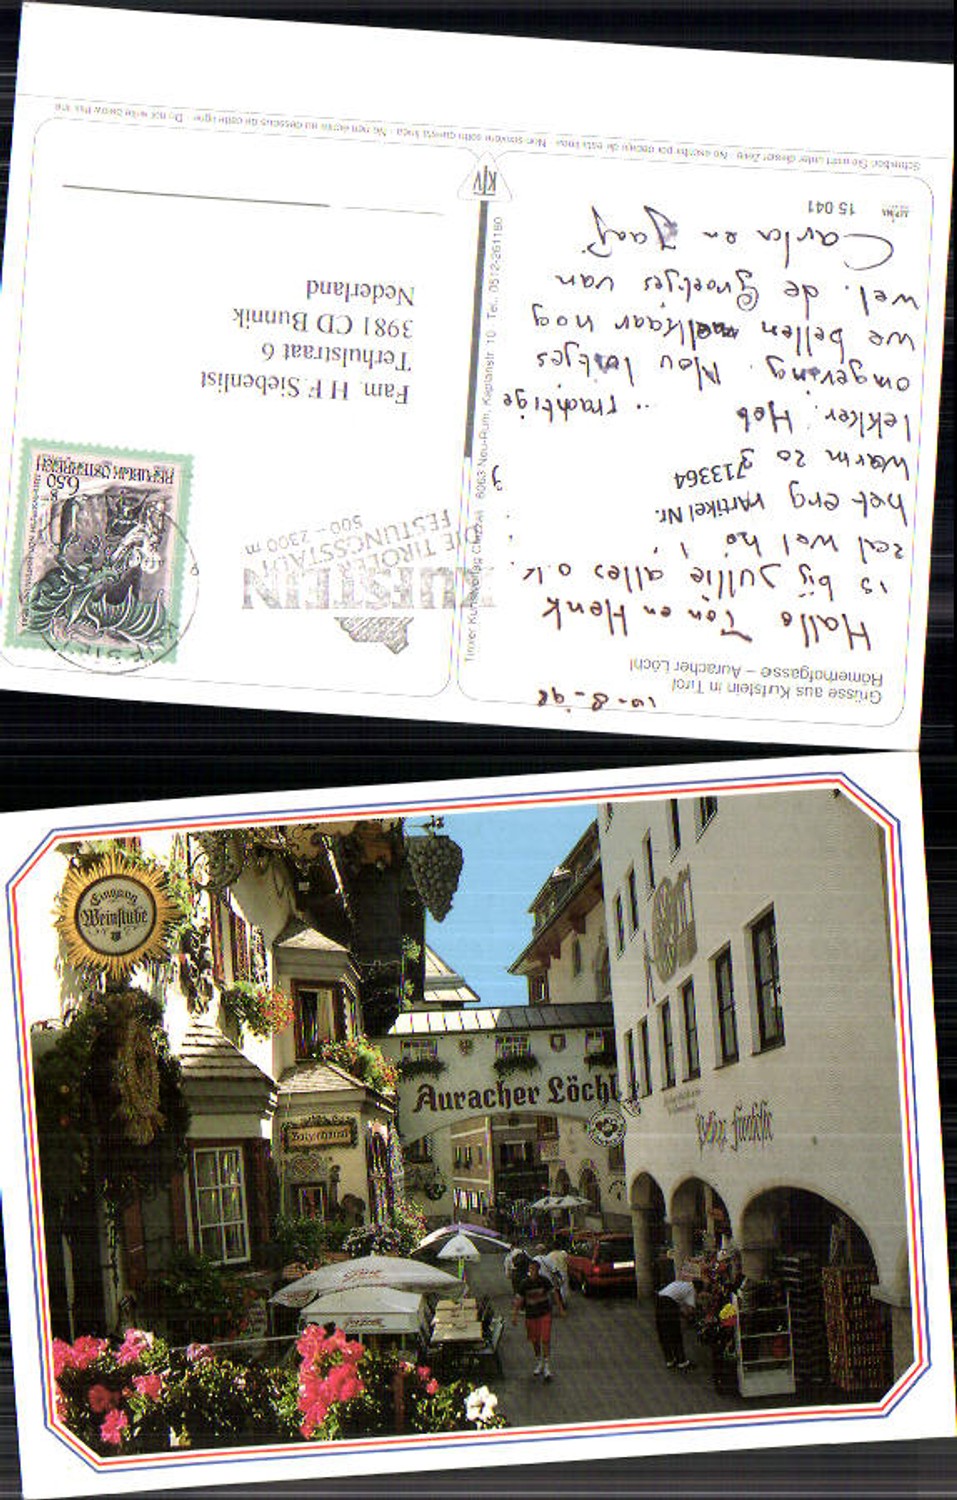 Grüsse aus Kufstein in Tirol
Römerhofgasse – Auracher Löchl
10-8-'98
Hallo Ton en Henk
is bij jullie alles o.k.
zal wel hè
het erg
warm zo
lekker. Heb
Prachtige
omgeving. Nou luitjes
we bellen elkaar nog
wel. de Groetjes van
Carla en Jaap
Artikel Nr.
713364
15 041
KUFSTEIN
DIE TIROLER
FESTUNGSSTADT
500 – 2300 m
REPUBLIK ÖSTERREICH
6.50
Fam. H F Siebenlist
Terhulstraat 6
3981 CD Bunnik
Nederland
Tiroler Kunstverlag Chizzali 6063 Neu-Rum, Kaplanstr. 10 Tel. 0512-261180
KIV
Schreiben Sie nicht unter dieser Zeile · No escribir por debajo de esta línea · Non scrivere sotto questa linea · Ne rien écrire au dessous de cette ligne · Do not write below this line
Eingang
Weinstube
Auracher Löchl
Batzenhäusl